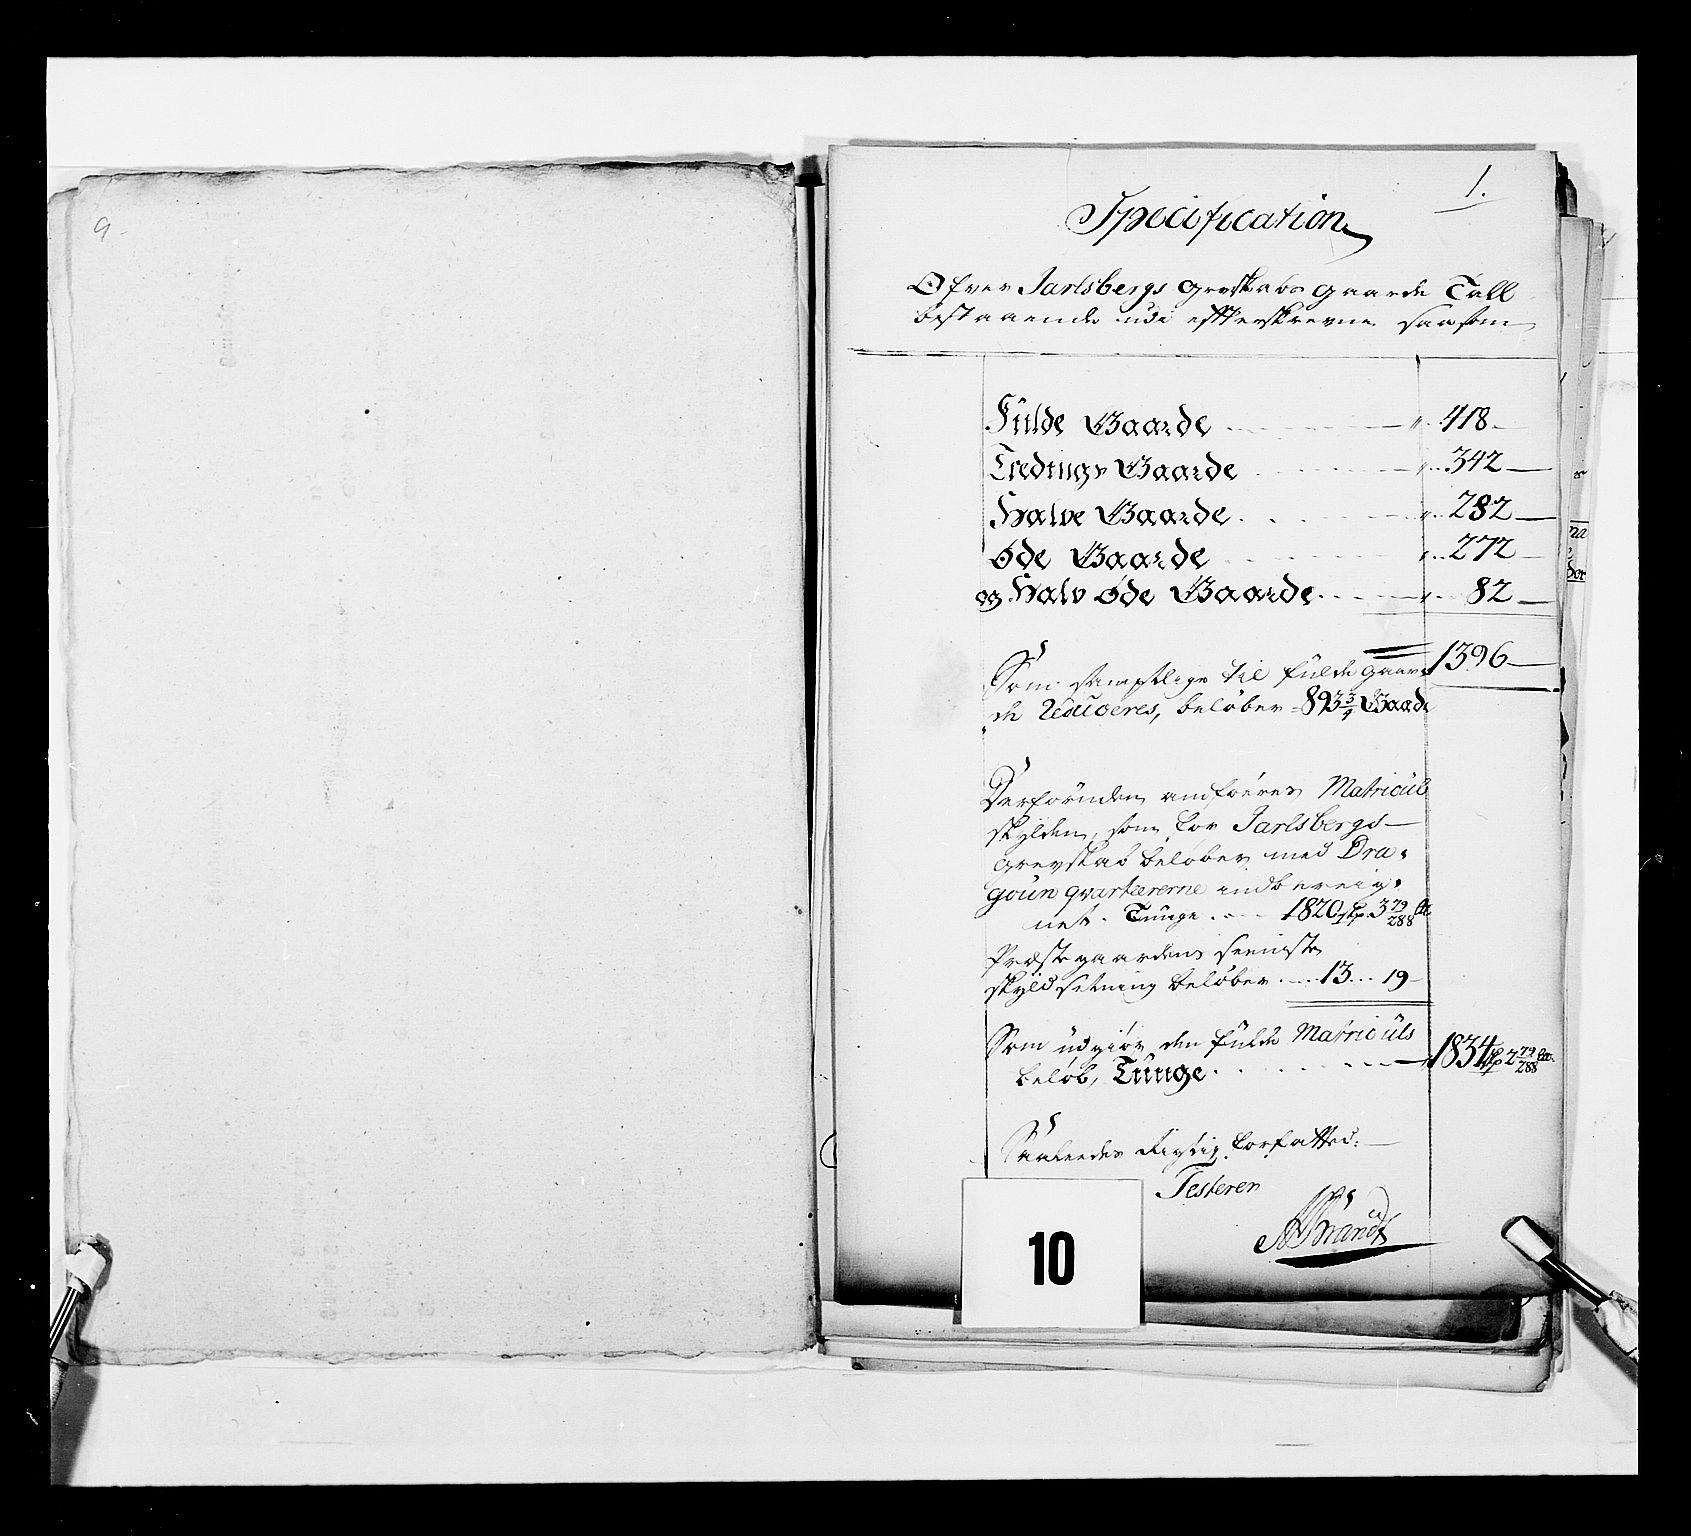 9.
1.
Specification
Ofver Jarlsbergs Grevskabs Gaarde Tall
bestaaende udi effterskrevne saasom
Fulde Gaarde - - - - - " 418 -
Tredings Gaarde - - - - - " 342 -
Halve Gaarde - - - - - " 282 -
Øde Gaarde - - - - - " 272 -
og Halv Øde Gaarde - - - - - " 82 -
1396 -
Som samptlige til fulde Gaar-
de Reduceres, beløber - 893 3/4 Gaarde
Derforuden anføeres Matricul
skylden, som for Jarlsbergs
Grevskab beløber med Dra-
goun qvarteererne indbereig-
net. Tunge - - - 1820 skp. 3 79/288 ltr
Præstegaardens seeniste
skyldsetning beløber - - - 13 - - 19 -
Som udgiør den fulde Matriculs
beløb, Tunge - - - - - 1834 skp 2 79/288 ltr.
Saaleedes Rigtig forfatted.
Testerer
Brandt
10